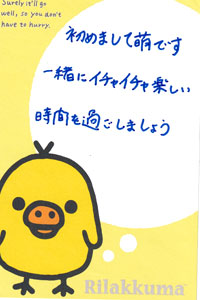 Surely it'll go
well, so you don't
have to hurry.
初めまして萌です
一緒にイチャイチャ楽しい
時間を過ごしましょう
Rilakkuma™